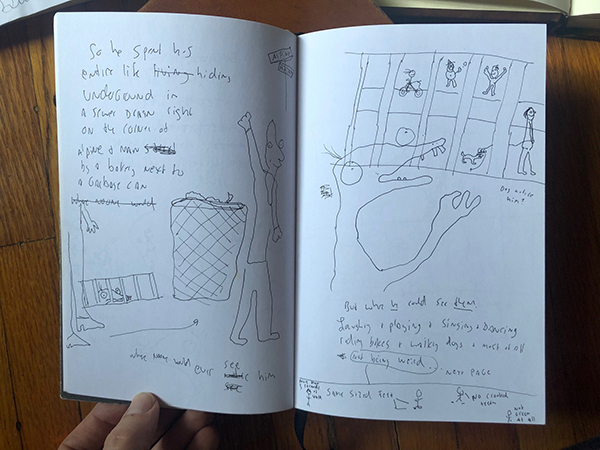 So he spent his
entire life living hiding
UNDERGOUND in
a sewer DRAIN right
ON the corner of
alpine & MAIN
by a bakery next to
a Garbage can
where noone would
where noone would ever see him
see
Alpine
Dog notices
him?
But where he could see them
Laughing + playing + Singing + Dancing
riding bikes + walking dogs + most of all
Not being weird.
NEXT PAGE
Same Sized Feet
No crooked
teeth
not
green
at all